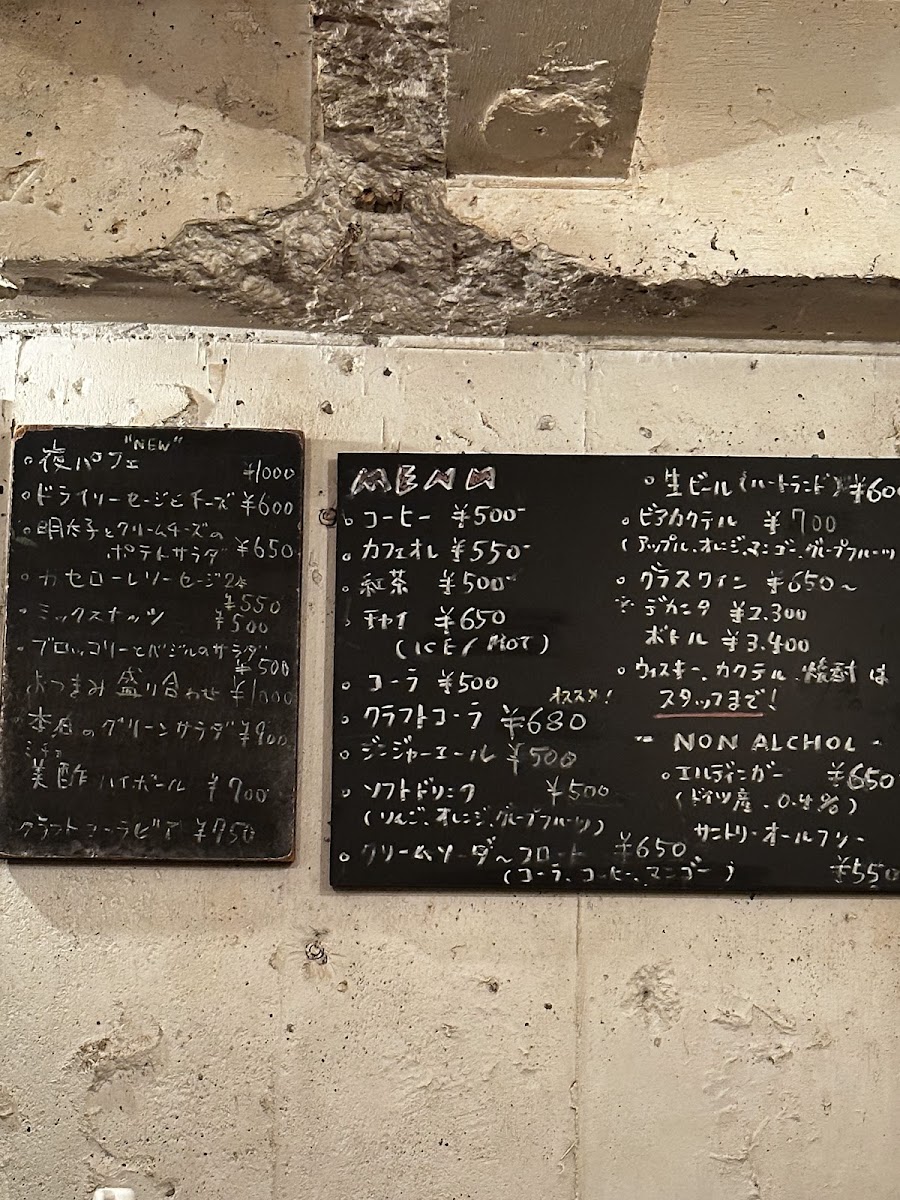 "NEW"
。夜パフェ ¥1000
。ドライソーセージとチーズ ¥600
。明太子とクリームチーズの
ポテトサラダ ¥650
。カセローレソーセージ2本
¥550
。ミックスナッツ ¥500
。ブロッコリーとバジルのサラダ
¥500
おつまみ盛り合わせ ¥1000
。本日のグリーンサラダ ¥900
美酢ハイボール ¥700
クラフトコーラビア ¥750
MENU
。コーヒー ¥500-
。カフェオレ ¥550-
。紅茶 ¥500-
。チャイ ¥650
(ICE/HOT)
。コーラ ¥500
オススメ!
。クラフトコーラ ¥680
。ジンジャーエール ¥500
。ソフトドリンク ¥500
(りんご、オレンジ、グレープフルーツ)
。クリームソーダ〜フロート ¥650
(コーラ、コーヒー、マンゴー)
。生ビール(ハートランド) ¥600
。ビアカクテル ¥700
(アップル、オレンジ、マンゴー、グレープフルーツ
。グラスワイン ¥650〜
※デカンタ ¥2.300
ボトル ¥3.400
。ウィスキー、カクテル、焼酎は
スタッフまで!
- NON ALCHOL -
。エルディンガー ¥650
(ドイツ産、0.4%)
サントリーオールフリー
¥550